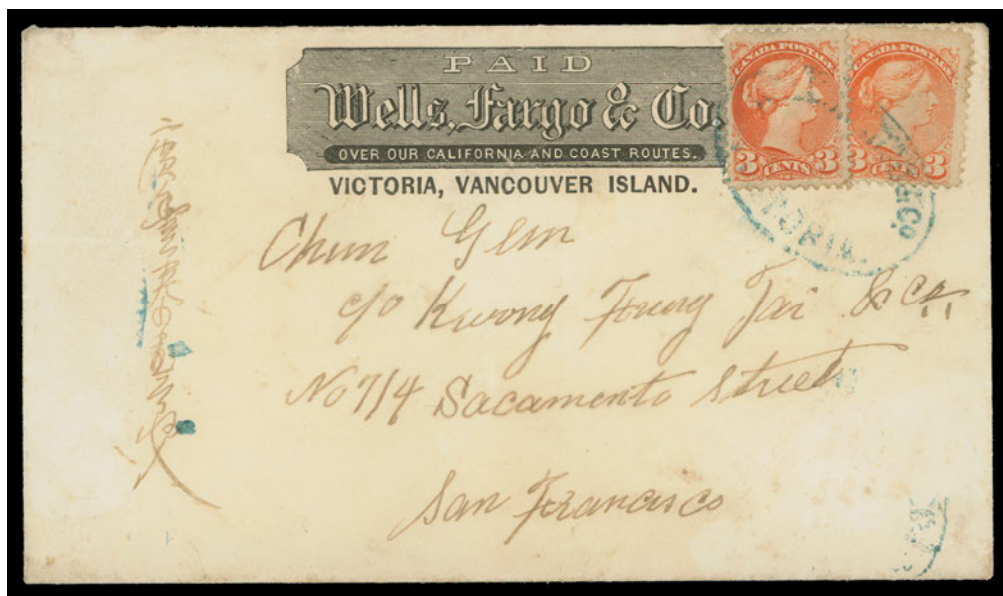 PAID
Wells, Fargo & Co.
OVER OUR CALIFORNIA AND COAST ROUTES.
VICTORIA, VANCOUVER ISLAND.
CANADA POSTAGE
3 CENTS 3
CANADA POSTAGE
3 CENTS 3
& Co
Chum Glin
c/o Kwong Foung Tai & Co.
No 714 Sacamento Street
San Francisco